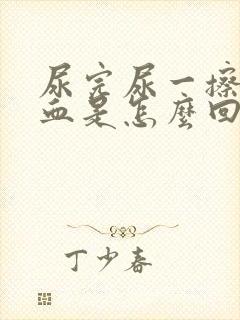 尿完尿一擦
血是怎麼回
丁少春